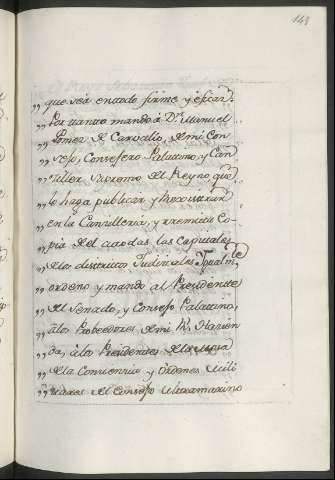 148
„ que sea en todo firme y eficaz.
„ Por tanto mando à Dⁿ. Manuel
„ Gomez de Carvallo, de mi Con
„ sejo, Consejero Palatino, y Can
„ ciller Supremo del Reyno que
„ lo haga publicar, y rexistrar
„ en la Cancilleria, y remita Co
„ pia de el a todas las Capitales
„ de los distritos Judiciales. Igualm.ᵗᵉ
„ ordeno y mando al Presidente
„ del Senado, y Consejo Palatino,
„ à los Probeedores de mi Rˡ. Hacien
„ da, à los Presidentes de la mesa
„ de la Conciencia y Ordenes Mili
„ tares del Consejo Ultramarino